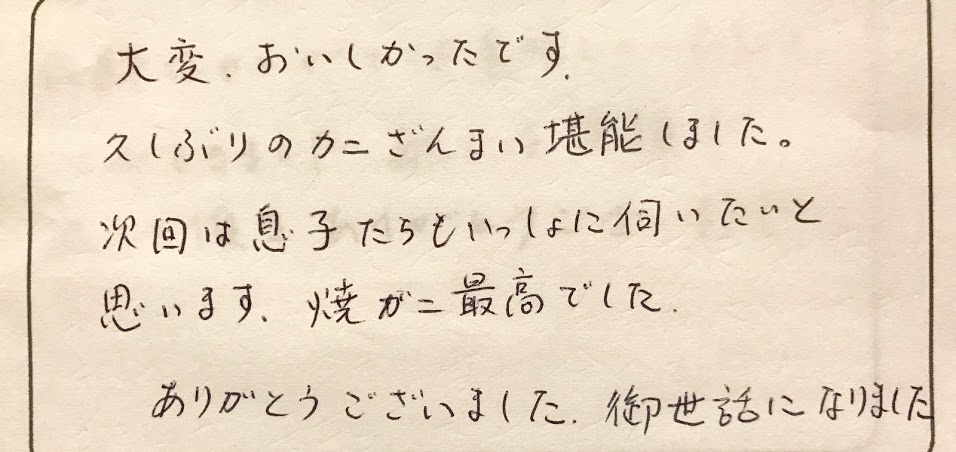 大変、おいしかったです.
久しぶりのカニざんまい堪能しました。
次回は息子たちもいっしょに伺いたいと
思います、焼ガニ最高でした.
ありがとうございました. 御世話になりました